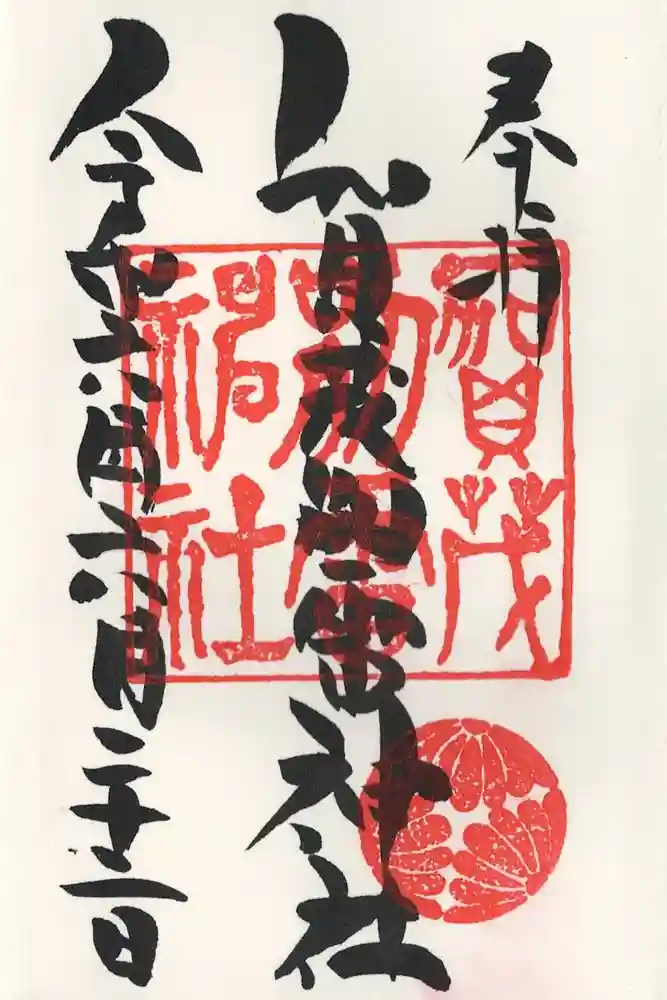 奉拝
賀茂別雷神社
令和 年 月二十一日
賀茂
別雷
神社